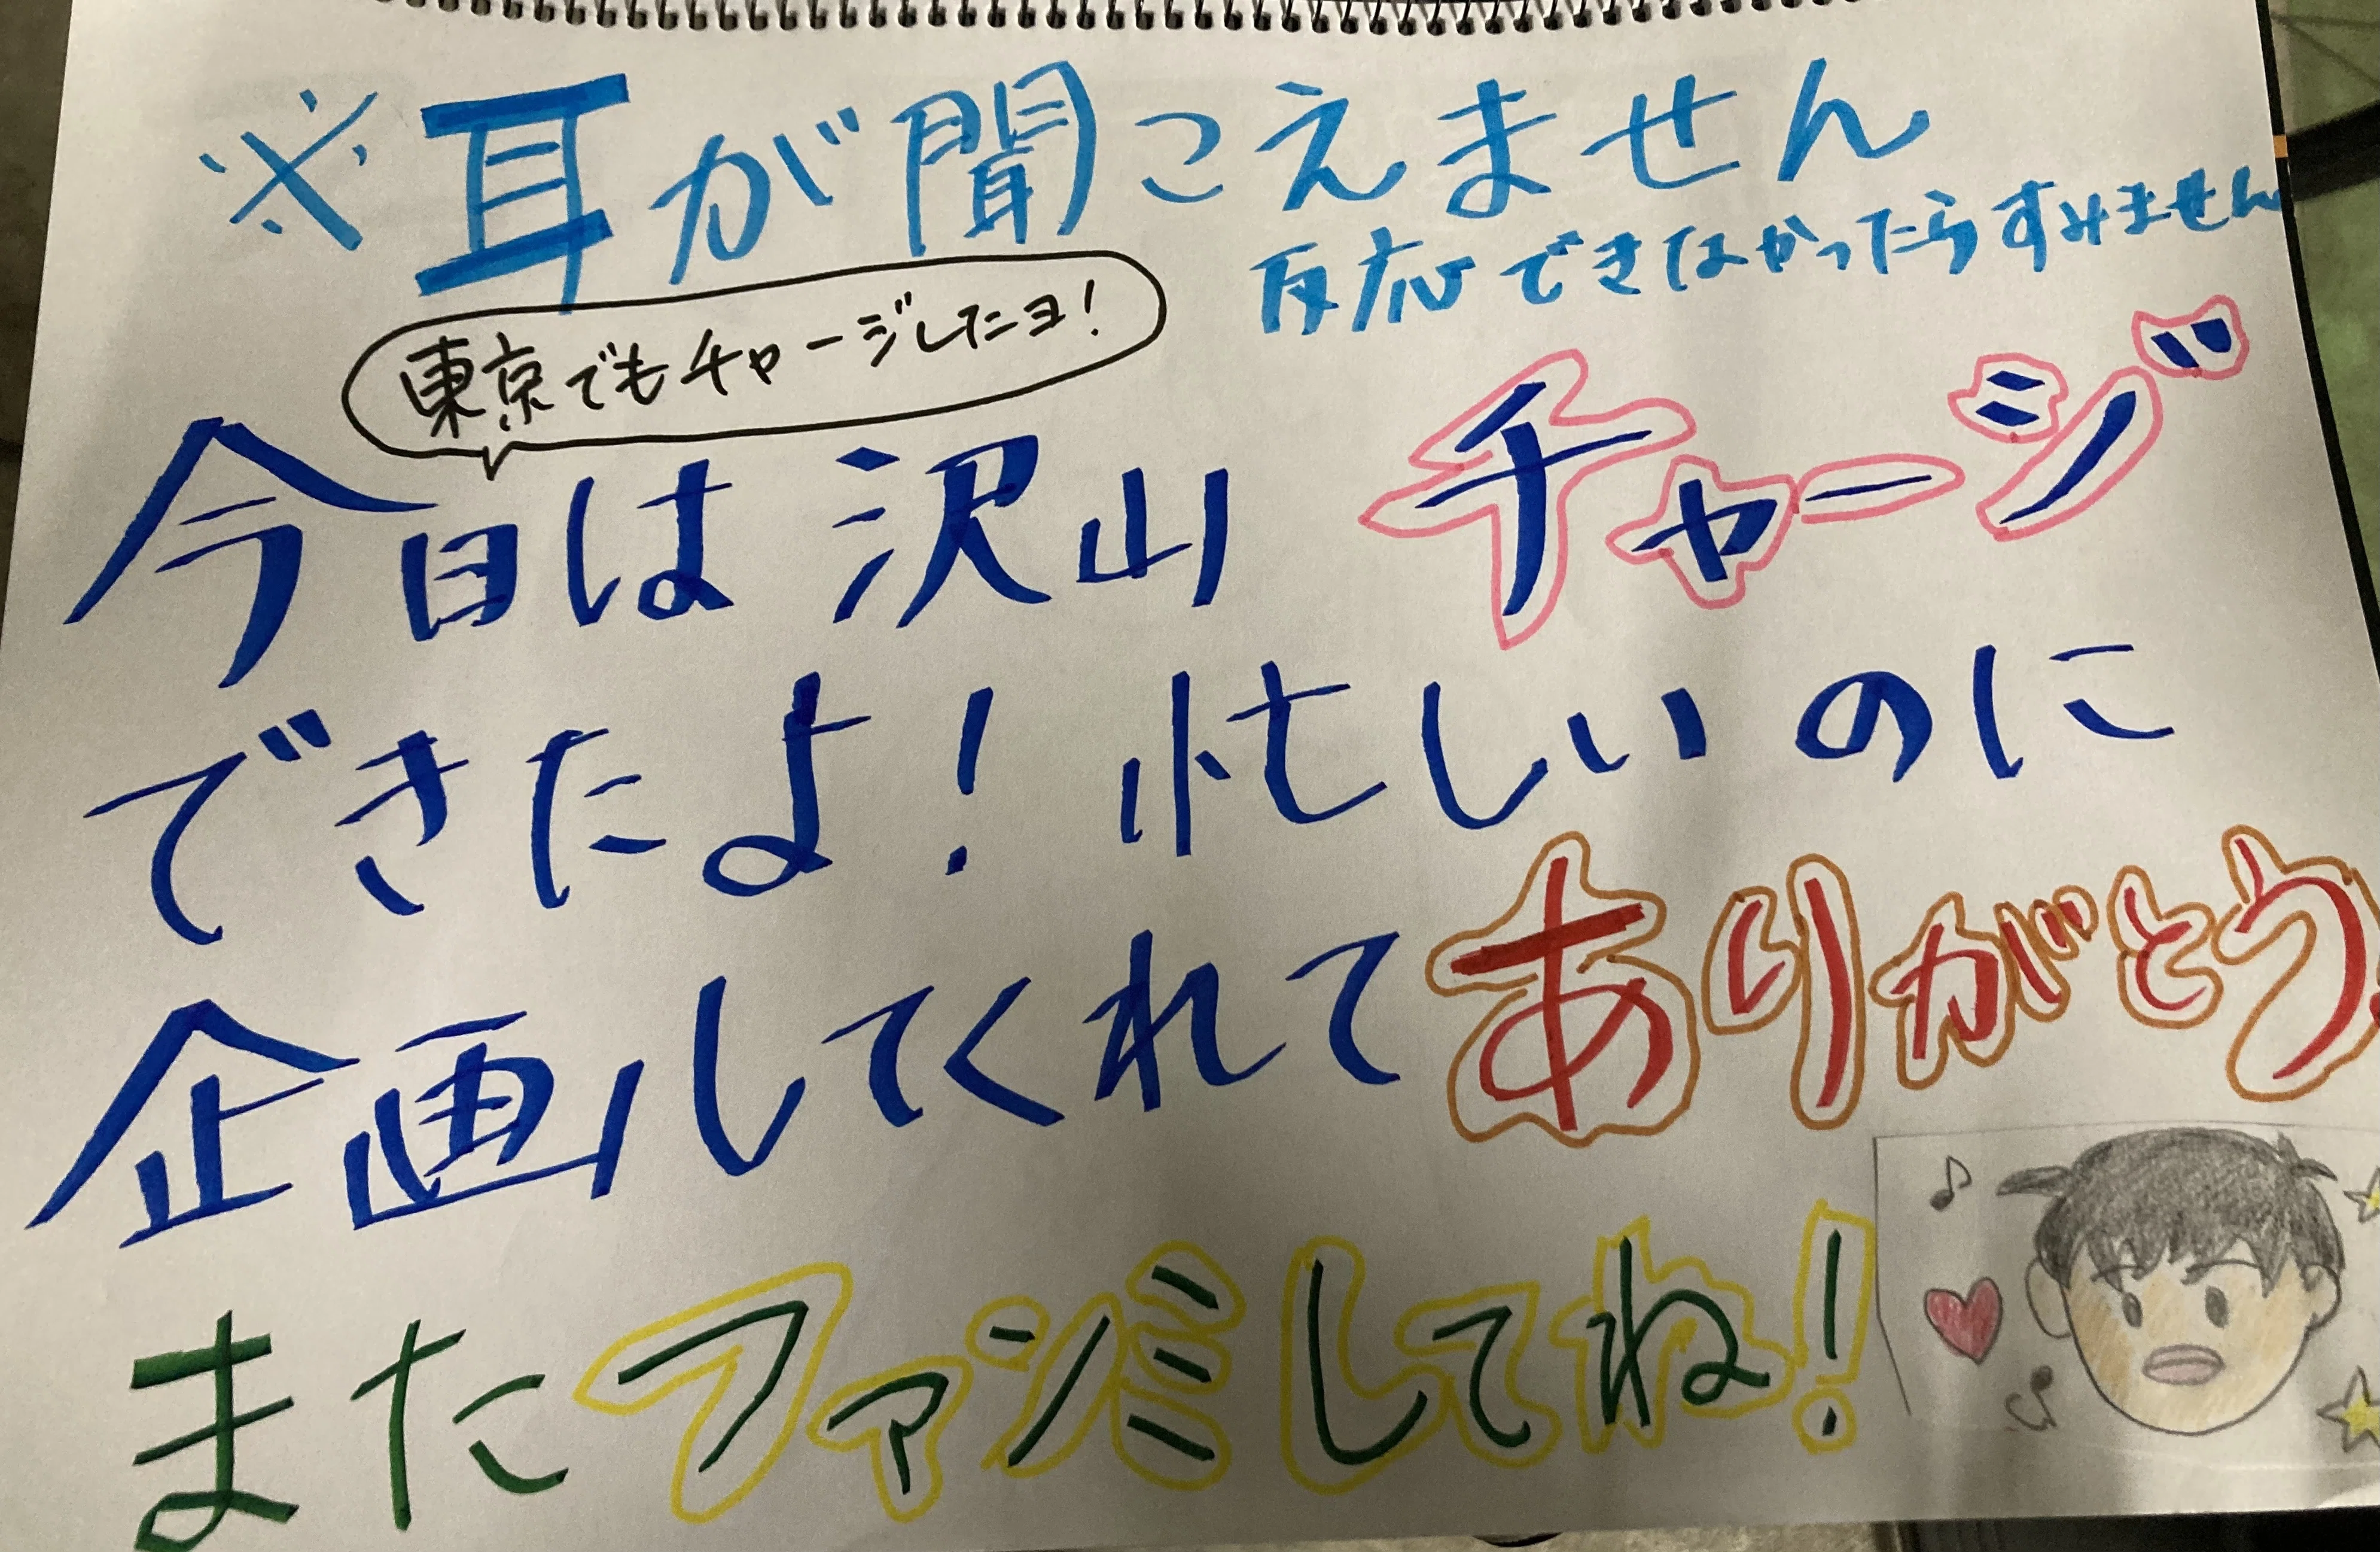 ※耳が聞こえません
反応できなかったらすみません
東京でもチャージしたヨ!
今日は沢山チャージ
できたよ!忙しいのに
企画してくれてありがとう!
またファンミしてね!